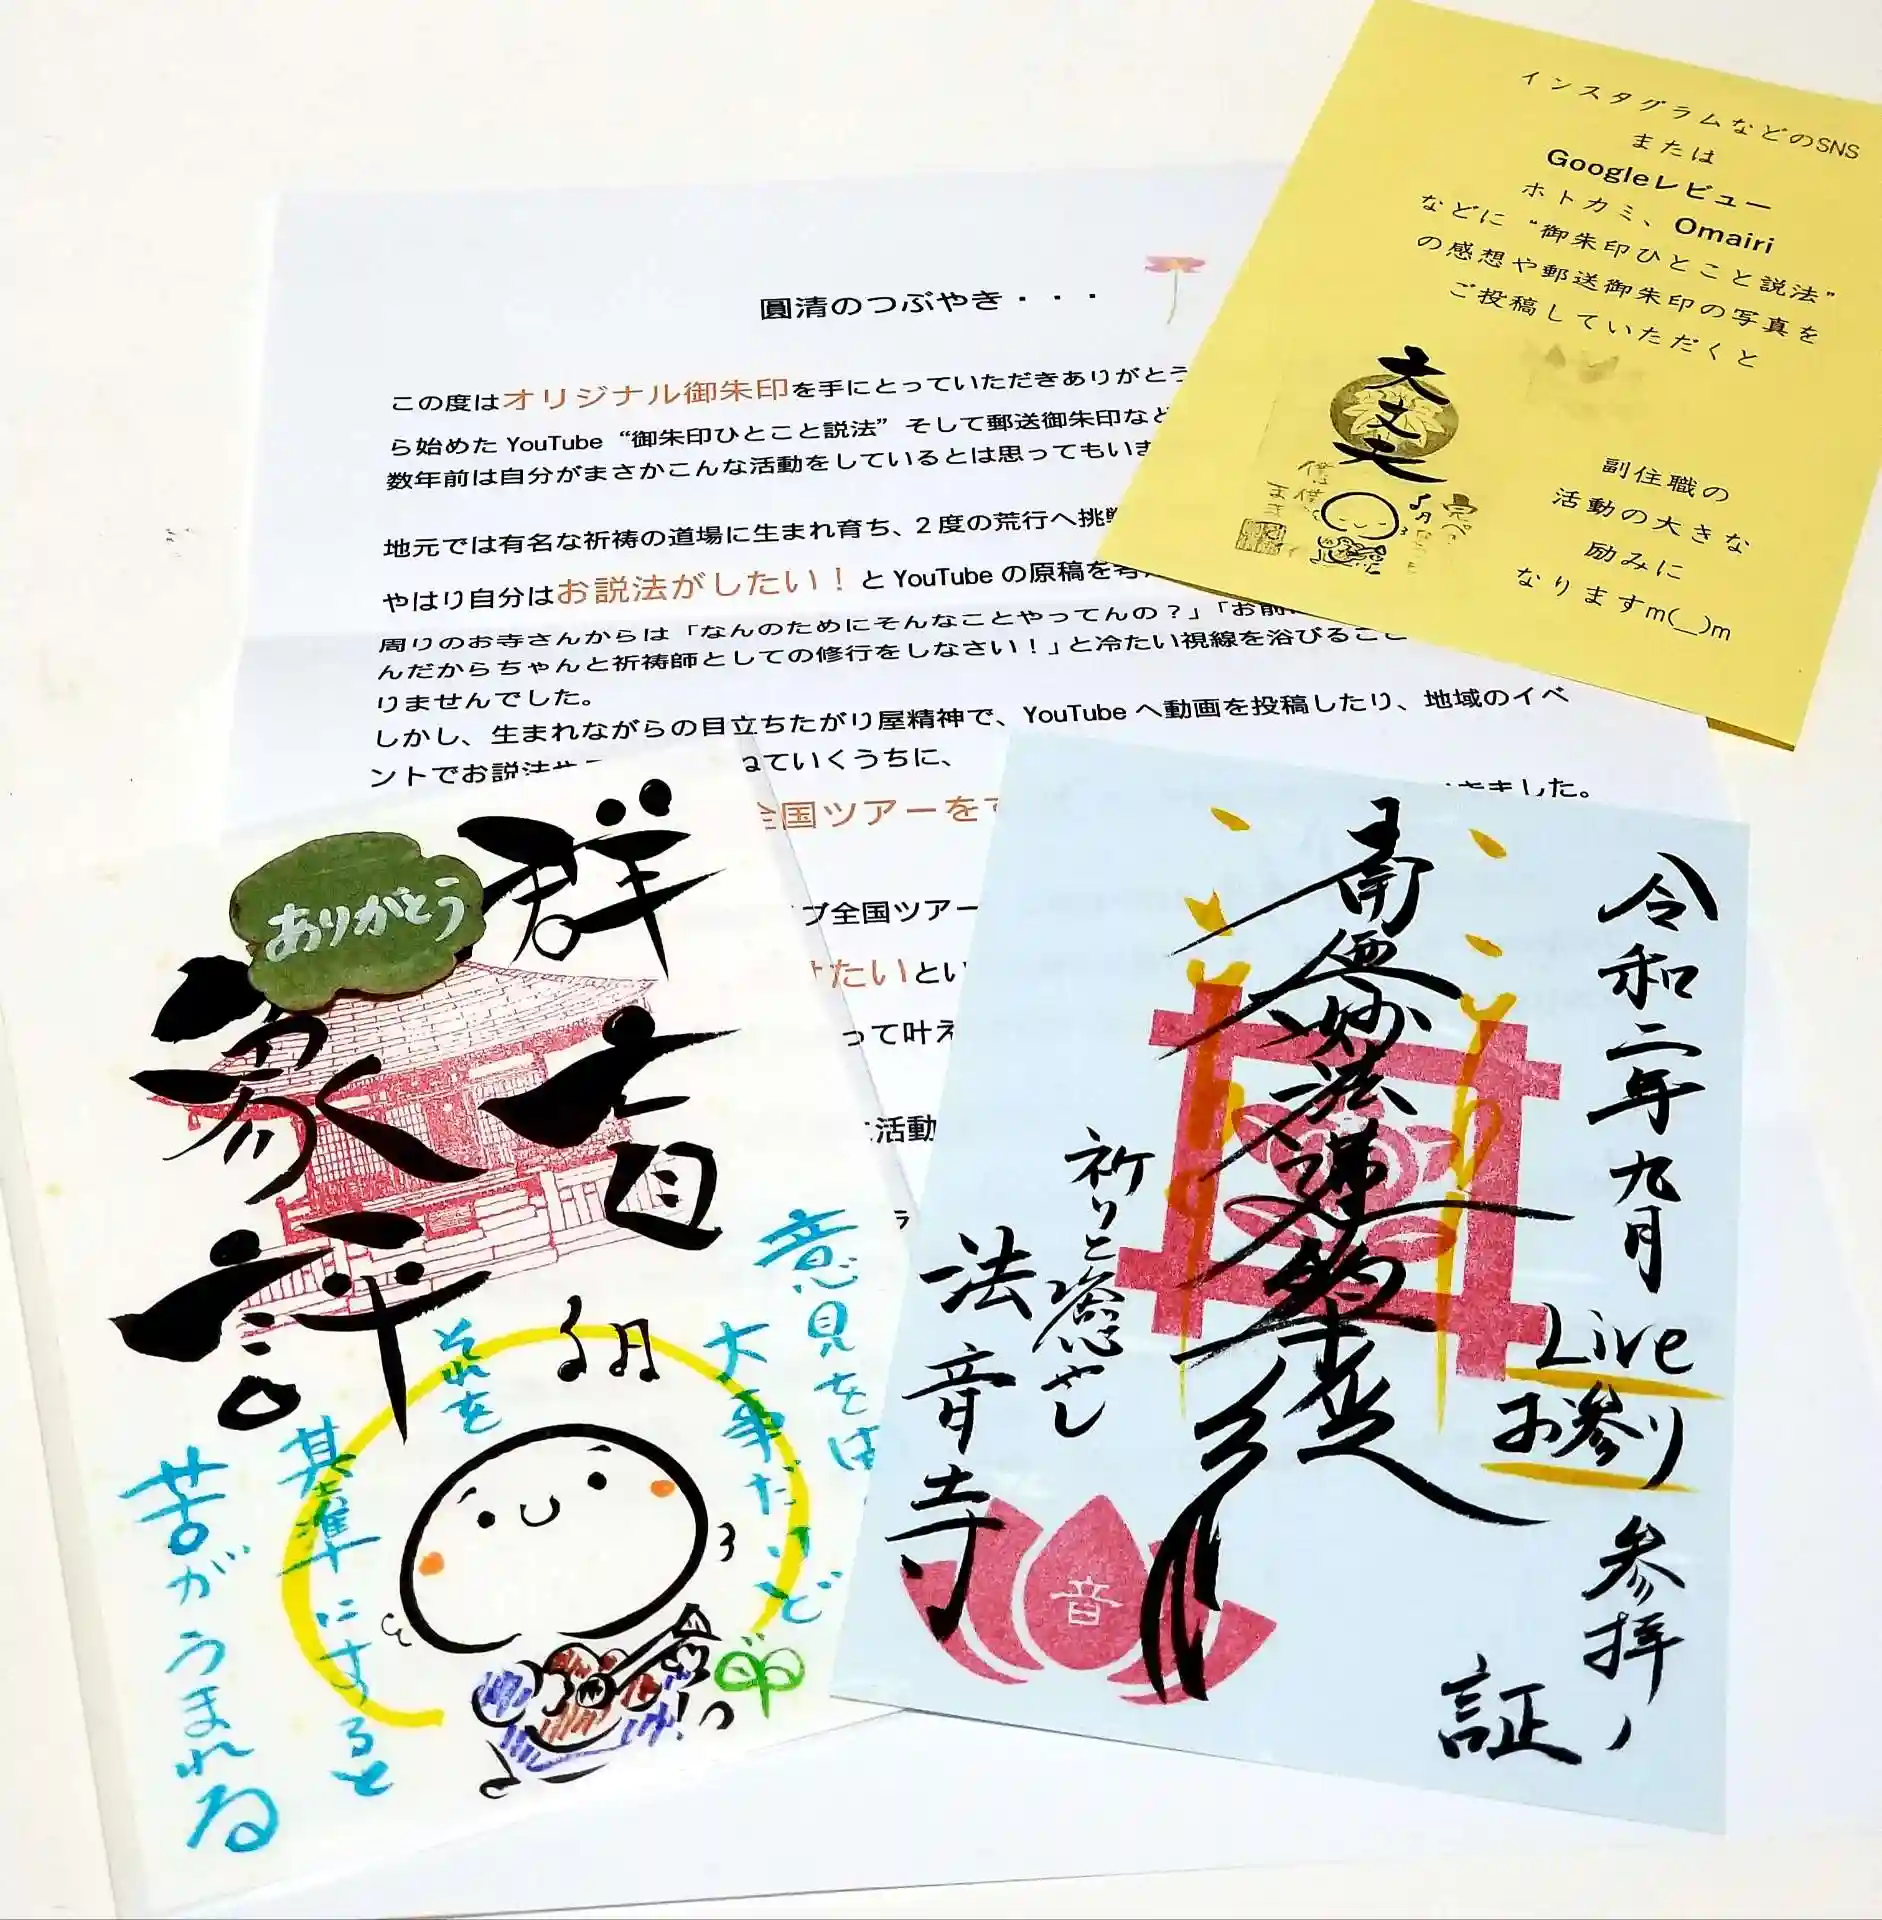 インスタグラムなどのSNS
または
Googleレビュー
ホトカミ、Omairi
などに“御朱印ひとこと説法”
の感想や郵送御朱印の写真を
ご投稿していただくと
大丈夫
副住職の
活動の大きな
励みに
なりますm(__)m
圓清のつぶやき・・・
この度はオリジナル御朱印を手にとっていただきありがとう
ら始めた YouTube “御朱印ひとこと説法” そして郵送御朱印など
数年前は自分がまさかこんな活動をしているとは思ってもいま
地元では有名な祈祷の道場に生まれ育ち、2 度の荒行へ挑戦
やはり自分はお説法がしたい！と YouTube の原稿を考え
周りのお寺さんからは「なんのためにそんなことやってんの？」「お前
んだからちゃんと祈祷師としての修行をしなさい！」と冷たい視線を浴びること
りませんでした。
しかし、生まれながらの目立ちたがり屋精神で、YouTube へ動画を投稿したり、地域のイベ
ントでお説法や
ねていくうちに、
きました。
全国ツアーをす
ブ全国ツアー
けたいとい
って叶え
活動
群盲
象評
ありがとう
意見を
大事だけど
それを
基準にすると
苦がうまれる
令和二年九月
Live
お参り
参拝ノ
証
南無妙法蓮華経
祈りと癒やし
法音寺
音